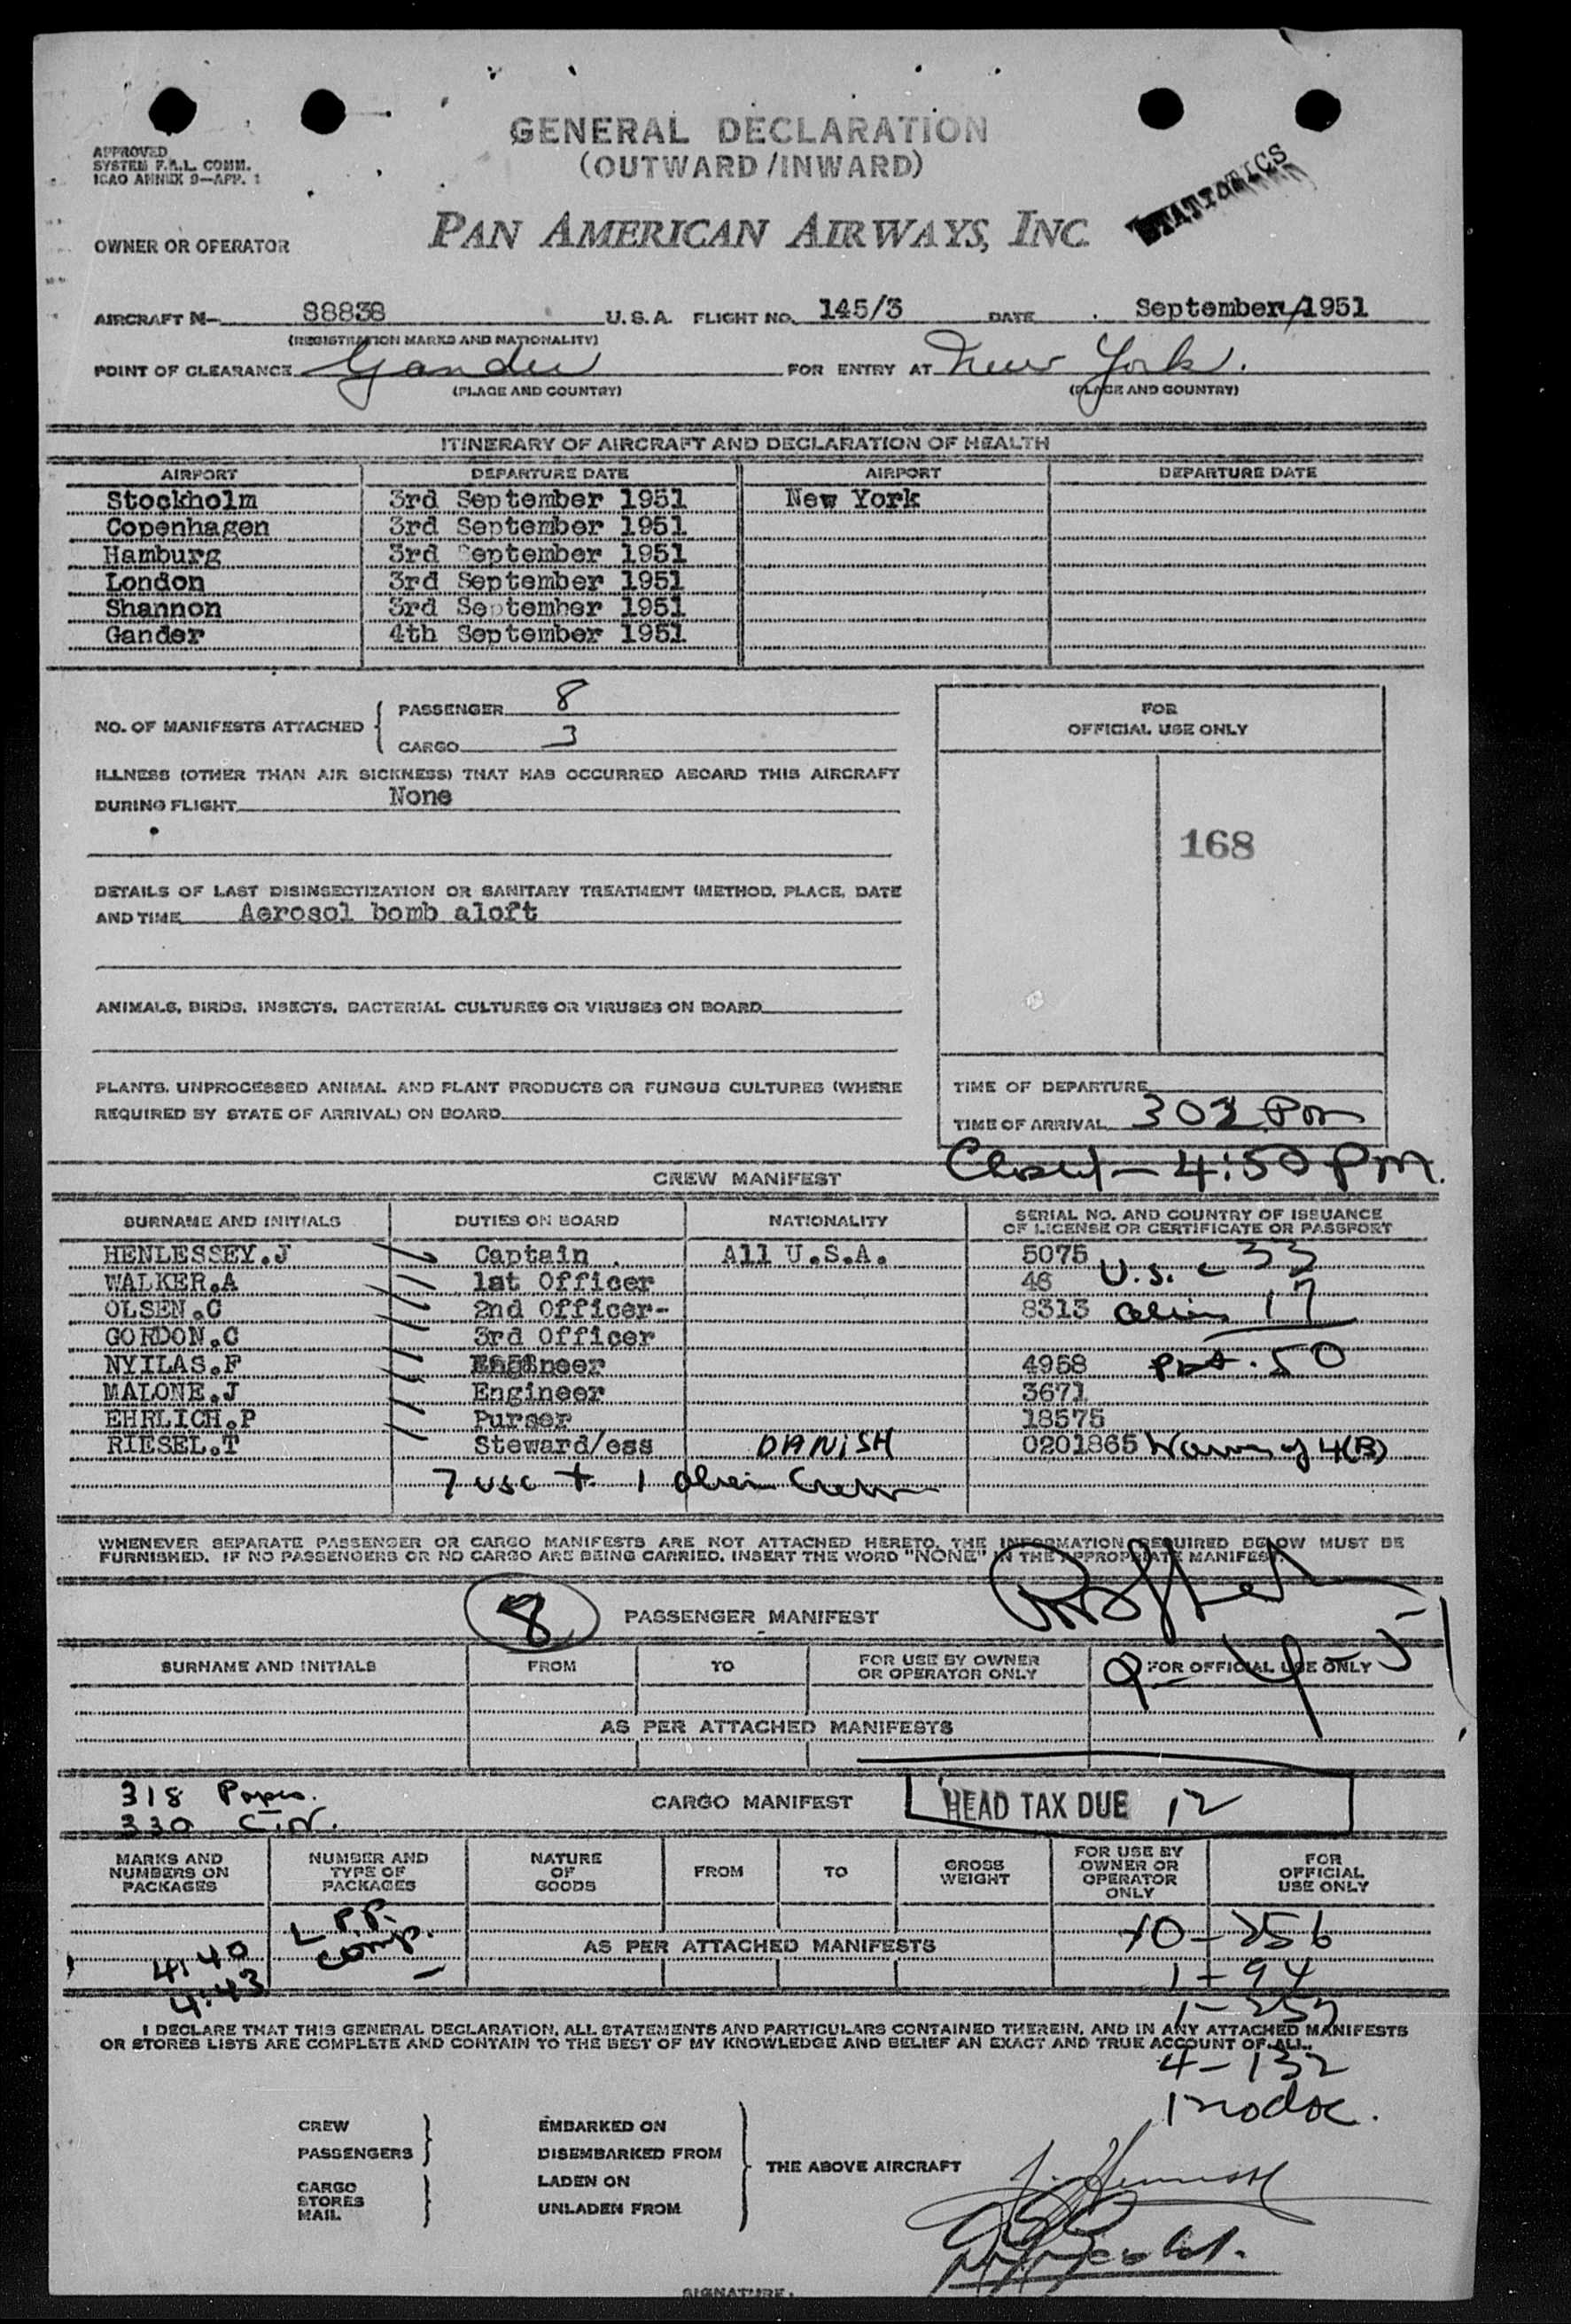 GENERAL DECLARATION
(OUTWARD/INWARD)
APPROVED
SYSTEM F.A.L. COMM.
ICAO ANNEX 9—APP. 1
STATISTICS
OWNER OR OPERATOR PAN AMERICAN AIRWAYS, INC.
AIRCRAFT N- 88838 U.S.A. FLIGHT NO. 145/3 DATE September/1951
(REGISTRATION MARKS AND NATIONALITY)
POINT OF CLEARANCE Gander FOR ENTRY AT New York.
(PLACE AND COUNTRY) (PLACE AND COUNTRY)
ITINERARY OF AIRCRAFT AND DECLARATION OF HEALTH
AIRPORT DEPARTURE DATE AIRPORT DEPARTURE DATE
Stockholm 3rd September 1951 New York
Copenhagen 3rd September 1951
Hamburg 3rd September 1951
London 3rd September 1951
Shannon 3rd September 1951
Gander 4th September 1951
NO. OF MANIFESTS ATTACHED
PASSENGER 8
CARGO 3
FOR
OFFICIAL USE ONLY
168
ILLNESS (OTHER THAN AIR SICKNESS) THAT HAS OCCURRED ABOARD THIS AIRCRAFT
DURING FLIGHT None
DETAILS OF LAST DISINSECTIZATION OR SANITARY TREATMENT (METHOD, PLACE, DATE
AND TIME Aerosol bomb aloft
ANIMALS, BIRDS, INSECTS, BACTERIAL CULTURES OR VIRUSES ON BOARD
PLANTS, UNPROCESSED ANIMAL AND PLANT PRODUCTS OR FUNGUS CULTURES (WHERE
REQUIRED BY STATE OF ARRIVAL) ON BOARD
TIME OF DEPARTURE
TIME OF ARRIVAL 303 Pm
Closed - 4:50 PM.
CREW MANIFEST
SURNAME AND INITIALS DUTIES ON BOARD NATIONALITY SERIAL NO. AND COUNTRY OF ISSUANCE
OF LICENSE OR CERTIFICATE OR PASSPORT
HENLESSEY.J Captain . All U.S.A. 5075 U.S. - 33
WALKER.A 1st Officer 46
OLSEN.C 2nd Officer- 8313 alien 17
GORDON.C 3rd Officer
NYILAS.F Engineer 4958 50
MALONE.J Engineer 3671
EHRLICH.P Purser 18575
RIESEL.T Steward/ess DANISH 0201865 4(B)
7 usc + 1 alien Crew
WHENEVER SEPARATE PASSENGER OR CARGO MANIFESTS ARE NOT ATTACHED HERETO, THE INFORMATION REQUIRED BELOW MUST BE
FURNISHED. IF NO PASSENGERS OR NO CARGO ARE BEING CARRIED, INSERT THE WORD "NONE" IN THE APPROPRIATE MANIFEST.
8 PASSENGER MANIFEST
SURNAME AND INITIALS FROM TO FOR USE BY OWNER
OR OPERATOR ONLY FOR OFFICIAL USE ONLY
9-4-51
AS PER ATTACHED MANIFESTS
318
330 C.N.
CARGO MANIFEST
HEAD TAX DUE 12
MARKS AND
NUMBERS ON
PACKAGES
NUMBER AND
TYPE OF
PACKAGES
NATURE
OF
GOODS
FROM
TO
GROSS
WEIGHT
FOR USE BY
OWNER OR
OPERATOR
ONLY
FOR
OFFICIAL
USE ONLY
L P.P.
comp.
4:40
4:43
AS PER ATTACHED MANIFESTS
10 - 256
1 - 94
1 - 257
4 - 132
1 no doc.
I DECLARE THAT THIS GENERAL DECLARATION, ALL STATEMENTS AND PARTICULARS CONTAINED THEREIN, AND IN ANY ATTACHED MANIFESTS
OR STORES LISTS ARE COMPLETE AND CONTAIN TO THE BEST OF MY KNOWLEDGE AND BELIEF AN EXACT AND TRUE ACCOUNT OF ALL.
CREW
PASSENGERS
CARGO
STORES
MAIL
EMBARKED ON
DISEMBARKED FROM
LADEN ON
UNLADEN FROM
THE ABOVE AIRCRAFT
SIGNATURE.